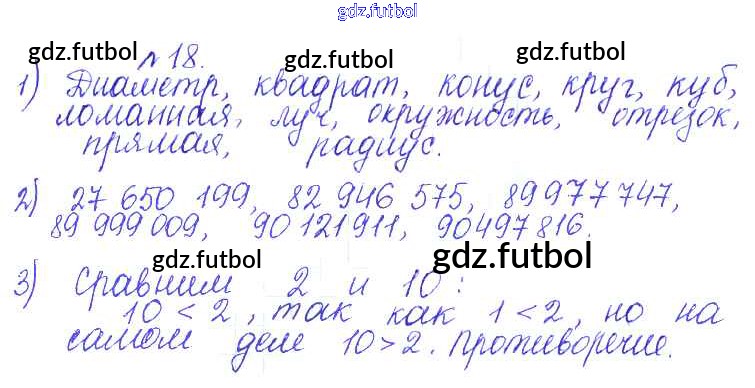 gdz.futbol
gdz.futbol gdz.futbol gdz.futbol
№ 18.
1) Диаметр, квадрат, конус, круг, куб,
ломанная, луч, окружность, отрезок,
прямая, радиус.
2) 27 650 199, 82 946 575, 89 977 747,
89 999 009, 90 121 911, 90 497 816.
gdz.futbol gdz.futbol
3) Сравним 2 и 10 :
10 < 2 , так как 1 < 2, но на
самом деле 10 > 2. Противоречие.